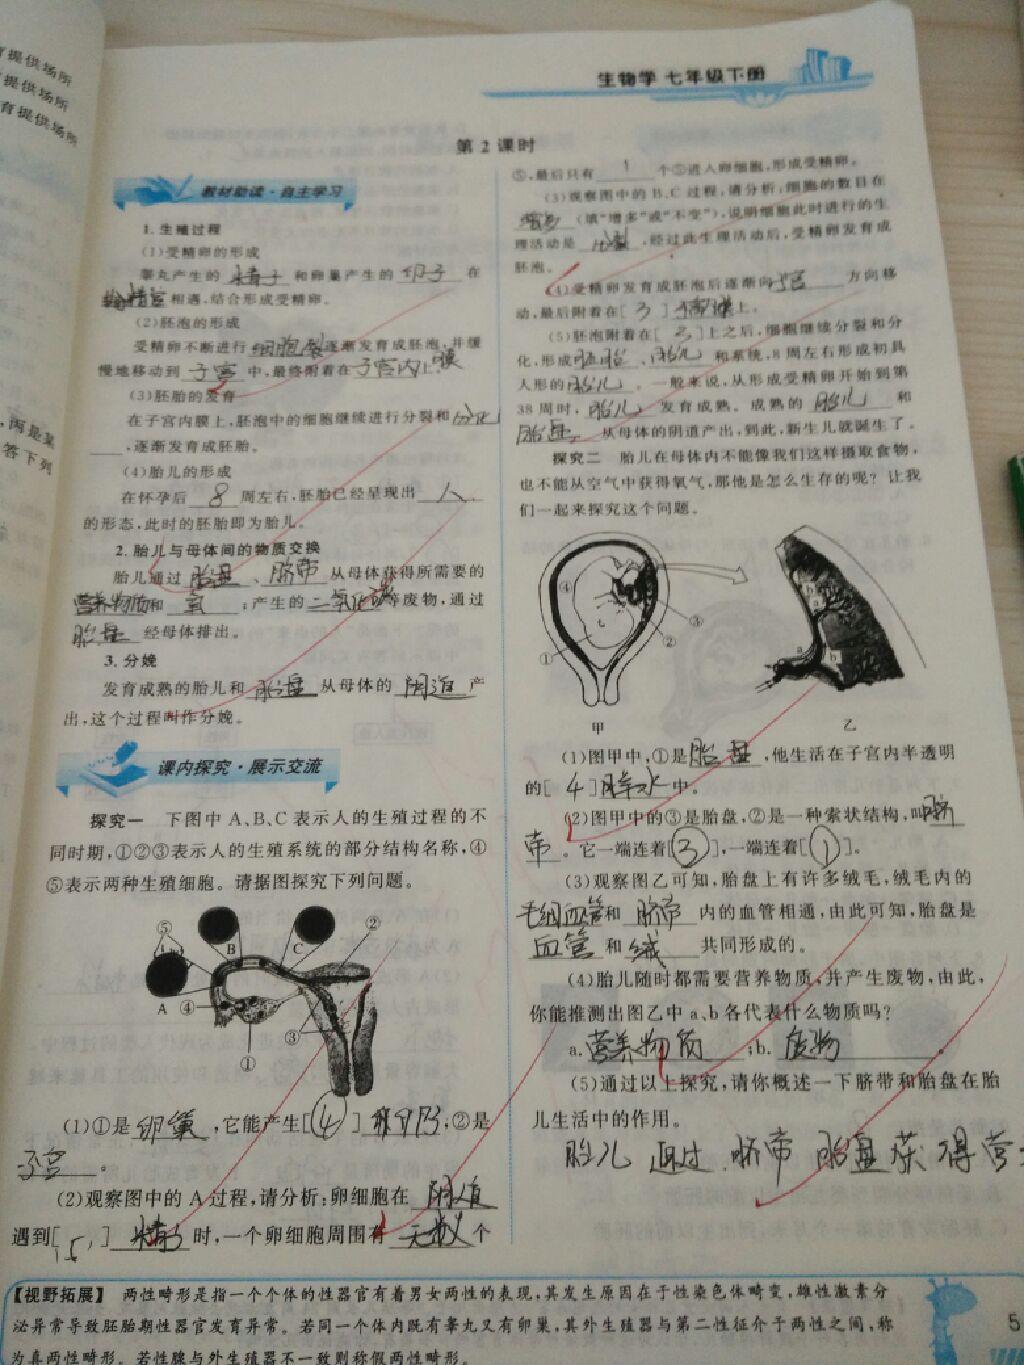 育提供场所
提供场所
育提供场所
,两是某
答下列
生物学 七年级下册
第2课时
教材助读·自主学习
1. 生殖过程
(1)受精卵的形成
睾丸产生的 精子 和卵巢产生的 卵子 在
相遇,结合形成受精卵。
(2)胚泡的形成
受精卵不断进行 细胞 逐渐发育成胚泡,并缓
慢地移动到 子宫 中,最终附着在 子宫内 上。
(3)胚胎的发育
在子宫内膜上,胚泡中的细胞继续进行分裂和 分化
,逐渐发育成胚胎。
(4)胎儿的形成
在怀孕后 8 周左右,胚胎已经呈现出 人
的形态,此时的胚胎即为胎儿。
2. 胎儿与母体间的物质交换
胎儿通过 胎盘 、 脐带 从母体获得所需要的
营养物质 和 氧 ;产生的 二氧化碳 等废物,通过
胎盘 经母体排出。
3. 分娩
发育成熟的胎儿和 胎盘 从母体的 阴道 产
出,这个过程叫作分娩。
课内探究·展示交流
探究一 下图中A、B、C表示人的生殖过程的不
同时期,①②③表示人的生殖系统的部分结构名称,④
⑤表示两种生殖细胞。请据图探究下列问题。
⑤ B C ②
A ④ ③
①
(1)①是 卵巢 ,它能产生[ 4 ] ;②是
子宫 。
(2)观察图中的A过程,请分析:卵细胞在
遇到[ 5 ] 精子 时,一个卵细胞周围有 无数 个
⑤,最后只有 1 个⑤进入卵细胞,形成受精卵。
(3)观察图中的B、C过程,请分析:细胞的数目在
增多 (填“增多”或“不变”),说明细胞此时进行的生
理活动是 分裂 ,经过此生理活动后,受精卵发育成
胚泡。
(4)受精卵发育成胚泡后逐渐向 子宫 方向移
动,最后附着在[ 3 ] 上。
(5)胚泡附着在[ 3 ]上之后,细胞继续分裂和分
化,形成 胚胎 、 胎儿 和系统,8周左右形成初具
人形的 胎儿 。一般来说,从形成受精卵开始到第
38周时, 胎儿 发育成熟。成熟的 胎儿 和
胎盘 从母体的阴道产出,到此,新生儿就诞生了。
探究二 胎儿在母体内不能像我们这样摄取食物,
也不能从空气中获得氧气,那他是怎么生存的呢?让我
们一起来探究这个问题。
④ ③ ② ①
a b
甲 乙
(1)图甲中,①是 胎盘 ,他生活在子宫内半透明
的[ 4 ] 羊水 中。
(2)图甲中的③是胎盘,②是一种索状结构,叫 脐
带 。它一端连着[ 3 ],一端连着[ 1 ]。
(3)观察图乙可知,胎盘上有许多绒毛,绒毛内的
毛细血管 和 脐带 内的血管相通,由此可知,胎盘是
血管 和 绒 共同形成的。
(4)胎儿随时都需要营养物质,并产生废物,由此,
你能推测出图乙中a、b各代表什么物质吗?
a. 营养物质 ;b. 废物 。
(5)通过以上探究,请你概述一下脐带和胎盘在胎
儿生活中的作用。
胎儿 通过 脐带 胎盘 获得营
【视野拓展】 两性畸形是指一个个体的性器官有着男女两性的表现,其发生原因在于性染色体畸变,雄性激素分
泌异常导致胚胎期性器官发育异常。若同一个体内既有睾丸又有卵巢,其外生殖器与第二性征介于两性之间,称
为真两性畸形。若性腺与外生殖器不一致则称假两性畸形。
5